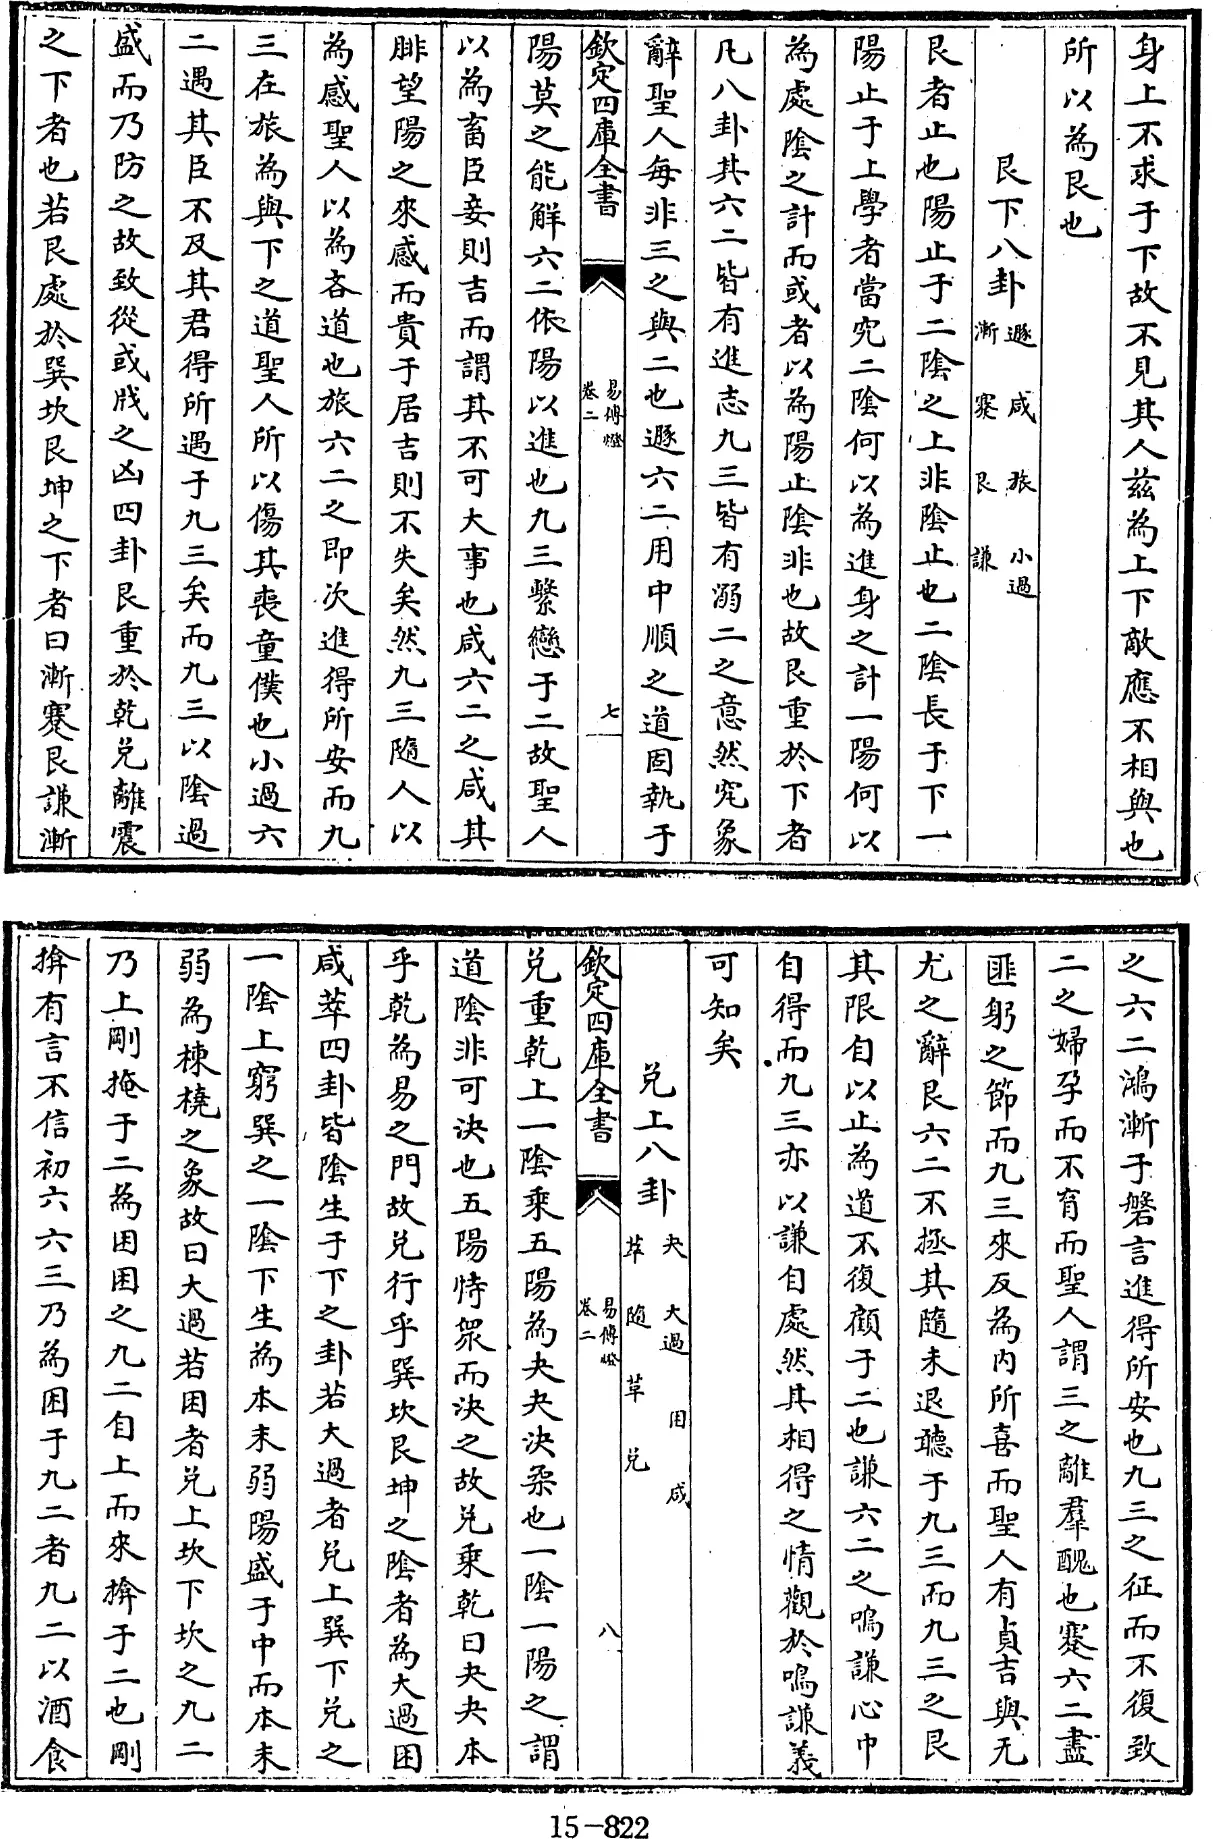 身上不求于下故不見其人茲為上下敵應不相與也
所以為艮也
艮下八卦
遯 咸 旅 小過
漸 蹇 艮 謙
艮者止也陽止于二陰之上非陰止也二陰長于下一
陽止于上學者當究二陰何以為進身之計一陽何以
為處陰之計而或者以為陽止陰非也故艮重於下者
凡八卦其六二皆有進志九三皆有溺二之意然究象
辭聖人每非三之與二也遯六二用中順之道固執于
欽定四庫全書
易傳燈
卷二
七
陽莫之能解六二依陽以進也九三繫戀于二故聖人
以為畜臣妾則吉而謂其不可大事也咸六二之咸其
腓望陽之來感而貴于居吉則不失矣然九三隨人以
為感聖人以為吝道也旅六二之即次進得所安而九
三在旅為與下之道聖人所以傷其喪童僕也小過六
二遇其臣不及其君得所遇于九三矣而九三以陰過
盛而乃防之故致從或戕之凶四卦艮重於乾兌離震
之下者也若艮處於巽坎艮坤之下者曰漸蹇艮謙漸
之六二鴻漸于磐言進得所安也九三之征而不復致
二之婦孕而不育而聖人謂三之離羣醜也蹇六二盡
匪躬之節而九三來反為內所喜而聖人有貞吉與无
尤之辭艮六二不拯其隨未退聽于九三而九三之艮
其限自以止為道不復顧于二也謙六二之鳴謙心中
自得而九三亦以謙自處然其相得之情觀於鳴謙義
可知矣
兌上八卦
夬 大過 困 咸
萃 隨 革 兌
欽定四庫全書
易傳燈
卷二
八
兌重乾上一陰乘五陽為夬夬決柔也一陰一陽之謂
道陰非可決也五陽恃衆而決之故兌乘乾曰夬夬本
乎乾為易之門故兌行乎巽坎艮坤之陰者為大過困
咸萃四卦皆陰生于下之卦若大過者兌上巽下兌之
一陰上窮巽之一陰下生為本末弱陽盛于中而本末
弱為棟橈之象故曰大過若困者兌上坎下坎之九二
乃上剛掩于二為困困之九二自上而來揜于二也剛
揜有言不信初六六三乃為困于九二者九二以酒食
15-822